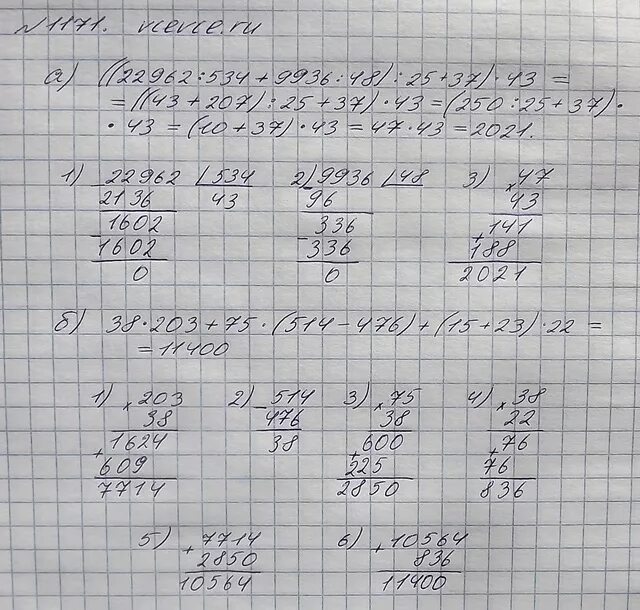 №1171. vcevce.ru
а) ((22962:534+9936:48):25+37)·43 =
= ((43+207):25+37)·43=(250:25+37)·
·43 = (10+37)·43=47·43=2021.
1) 22962 534 2) 9936 48 3) ×47
-2136 43 -96 43
1602 336 +141
-1602 -336 188
0 0 2021
б) 38·203+75·(514-476)+(15+23)·22 =
= 11400
1) ×203 2) -514 3) ×75 4) ×38
38 476 38 22
+1624 38 +600 +76
609 225 76
7714 2850 836
5) +7714 6) +10564
2850 836
10564 11400